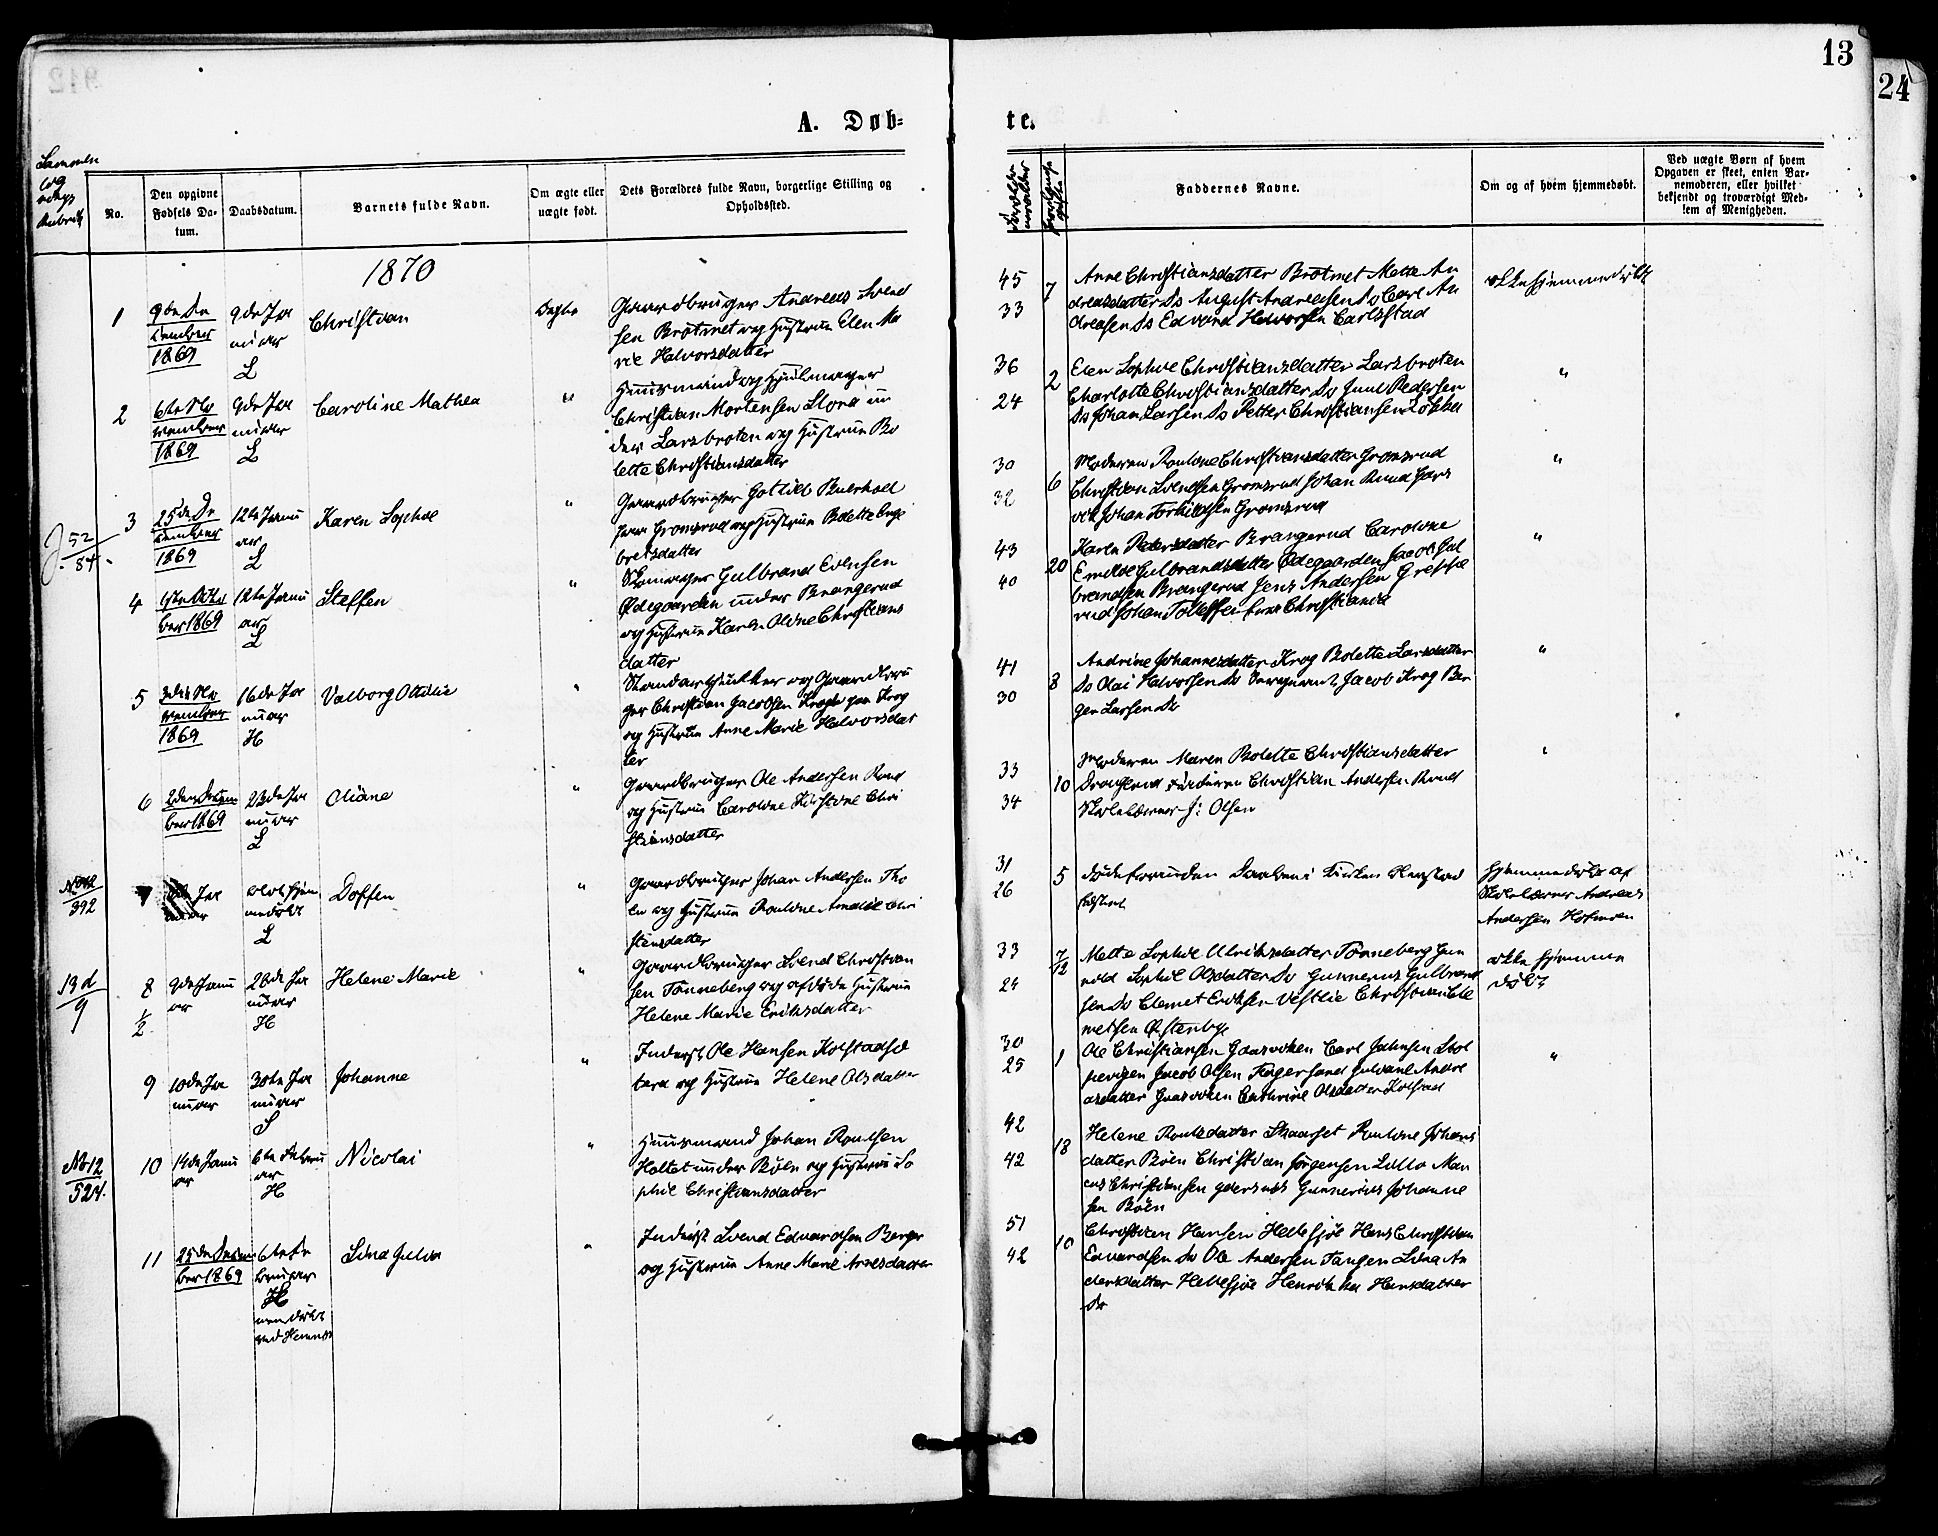 13
24
A. Døb-
te.
No.
Den opgivne
Fødsels Da-
tum.
Daabsdatum.
Barnets fulde Navn.
Om ægte eller
uægte født.
Dets Forældres fulde Navn, borgerlige Stilling og
Opholdssted.
Faddernes Navne.
Om og af hvem hjemmedøbt.
Ved uægte Børn af hvem
Opgaven er skeet, enten Bar-
nemoderen, eller hvilket
bekjendt og troværdigt Med-
lem af Menigheden.
1870
1
9de De
cember
1869
9de Ja
nuar
L
Christian
Ægte
Gaardbruger Andreas Svend
sen Brøtmet og Hustrue Elen Ma
rie Halvorsdatter
45
33
7
Anne Christiansdatter Brøtmet Mette An
dreasdatter Do August Andreasen Do Carl An
dreasen Do Edvard Halvorsen Carlsstad
ikke hjemmedøbt
2
6te No
vember
1869
9de Ja
nuar
L
Caroline Mathea
"
Huusmand og Hjulmager
Christian Mortensen Stora un
der Larsbroten og Hustrue Bo
lette Christiansdatter
36
24
2
Elen Sophie Christiansdatter Larsbroten
Charlotte Christiansdatter Do Juul Pedersen
Do Johan Larsen Do Petter Christiansen
"
3
25de De
cember
1869
12te Janu
ar
L
Karen Sophie
"
Gaardbruger Gotlieb
Gromsrud og Hustrue Bolette Inge
bretsdatter
30
32
6
Moderen Pauline Christiansdatter Gromsrud
Christian Svendsen Gromsrud Johan Ruud
Johan Torkildsen Gromsrud
"
52
84
4
Octo
ber 1869
12te Janu
ar
L
Steffen
"
Skomager Gulbrand Evensen
Ødegaarden under Brangerud
og Hustrue Karen Oline Christians
datter
43
40
20
Karen Pedersdatter Brangerud Caroline
Emilie Gulbrandsdatter Ødegaarden Jacob Gul
brandsen Brangerud Jens Andersen
rud Johan Tollefsen Christiania
"
5
No
vember
1869
16de Ja
nuar
H
Valborg Ottilie
"
Standartjunker og Gaardbru
ger Christian Jacobsen Krogh paa Krog
og Hustrue Anne Marie Halvorsdat
ter
41
30
8
Andrine Johannesdatter Krog Bolette Larsdatter
Do Olai Halvorsen Do Sergeant Jacob Krog Bir
ger Larsen Do
"
6
2den Decem
ber 1869
23de Ja
nuar
L
Oliane
"
Gaardbruger Ole Andersen Ruud
og Hustrue Caroline Kirstine Chri
stiansdatter
33
34
10
Moderen Maren Bolette Christiansdatter
Drangerud Christian Andersen Ruud
Skolelærer J: Olsen
"
No 12
392
7
Ja
nuar
hjem
medøbt
L
Doffen
"
Gaardbruger Johan Andersen Tho
len og Hustrue Pauline Amalie Chri
stensdatter
31
26
5
hjemmedøbt af
Skolelærer Andreas
Andersen Hofmoen
Bd
9
8
1/2
9de Janu
ar
26de Ja
nuar
H
Helene Marie
"
Gaardbruger Svend Christian
sen Tønneberg og afdøde Hustrue
Helene Marie Eriksdatter
33
24
7/12
Mette Sophie Ulriksdatter Tønneberg Gun
hild Sophie Olsdatter Do Gunnerus Gulbrand
sen Do Clemet Eriksen Vestlie Christian Cle
metsen Østenby
ikke hjemme
døbt
9
10de Ja
nuar
30te Ja
nuar
S
Johanne
"
Inderst Ole Hansen Kolstad
og Hustrue Helene Olsdatter
30
25
1
Ole Christiansen Gaasviken Carl Johnsen
Jacob Olsen Fagersand Andre
asdatter Gaasviken Cathrine Olsdatter Kolstad
"
No 12
524
10
14de Janu
ar
6te Febru
ar
H
Nicolai
"
Huusmand Johan Poulsen
Holtet under Bøen og Hustrue So
phie Christiansdatter
42
42
18
Helene Poulsdatter Skaaret Pauline Johans
datter Bøen Christian Jørgensen Lillo Mar
cus Christiansen Gunnerius Johanne
sen Bøen
11
25de Decem
ber 1869
6te Fe
bruar
H
men døbt
ved Hemnes
Lina Julia
"
Inderst Svend Edvardsen Berger
og Hustrue Anne Marie Arnesdatter
51
42
10
Christian Hansen Hellesjøe Hans Christian
Edvardsen Do Ole Andersen Tangen Lina An
dersdatter Hellesjøe Henrikka Hansdatter
Do